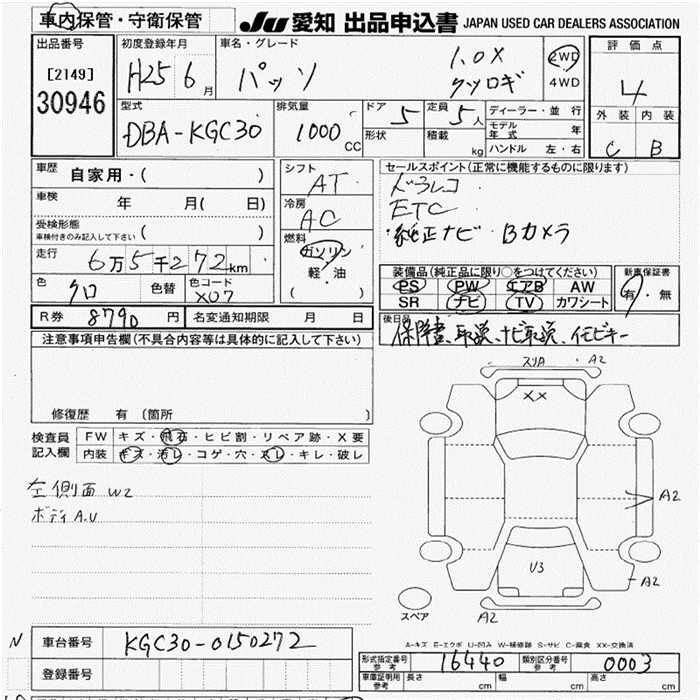 車内保管・守衛保管
JU 愛知 出品申込書 JAPAN USED CAR DEALERS ASSOCIATION
出品番号
[2149]
30946
初度登録年月
H25 6月
車名・グレード
パッソ
1.0X
クツロギ
2WD
4WD
評価点
4
外装 内装
C B
型式
DBA-KGC30
排気量
1000 CC
ドア 5
形状
定員 5人
積載 kg
ディーラー・並行
モデル年式 年
ハンドル 左・右
車歴
自家用・( )
車検 年 月( 日)
受検形態
車検付きのみ記入して下さい ( )
走行 6万5千272km
色 クロ 色替 色コード X07
R券 8790円 名変通知期限 月 日
シフト
AT
冷房
AC
燃料
ガソリン
軽・油
( )
セールスポイント(正常に機能するものに限ります)
ドラレコ
ETC
・純正ナビ・Bカメラ
装備品(純正品に限り○をつけてください)
PS PW エアB AW
SR ナビ TV カワシート
新車保証書
有・無
後日品
保障書、取説、ナビ取説、イモビキー
注意事項申告欄(不具合内容等は具体的に記入して下さい)
修復歴 有(箇所 )
検査員記入欄
FW キズ・飛石・ヒビ割・リペア跡・X要
内装 キズ・汚レ・コゲ・穴・スレ・キレ・破レ
左側面 W2
ボディA.U
スリA A2
XX
A2
U3
A2
スペア
A2
A-キズ E-エクボ U-凹み W-補修跡 S-サビ C-腐食 XX-交換済
N
車台番号 KGC30-0150272
登録番号
形式指定番号 参考 16440 類別区分番号 参考 0003
車庫証明用 参考 長さ cm 幅 cm 高さ cm